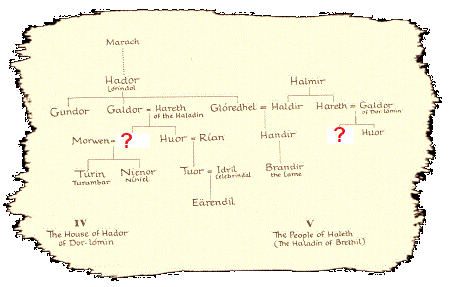 Marach
Hador
Lórindol
Halmir
Gundor Galdor = Hareth Glóredhel = Haldir Hareth = Galdor
of the Haladin of Dor-lómin
Morwen = ? Huor = Rían Handir ? Huor
Túrin Nienor Tuor = Idril Brandir
Turambar Níniel Celebrindal the Lame
Eärendil
IV V
The House of Hador The People of Haleth
of Dor-lómin (The Haladin of Brethil)